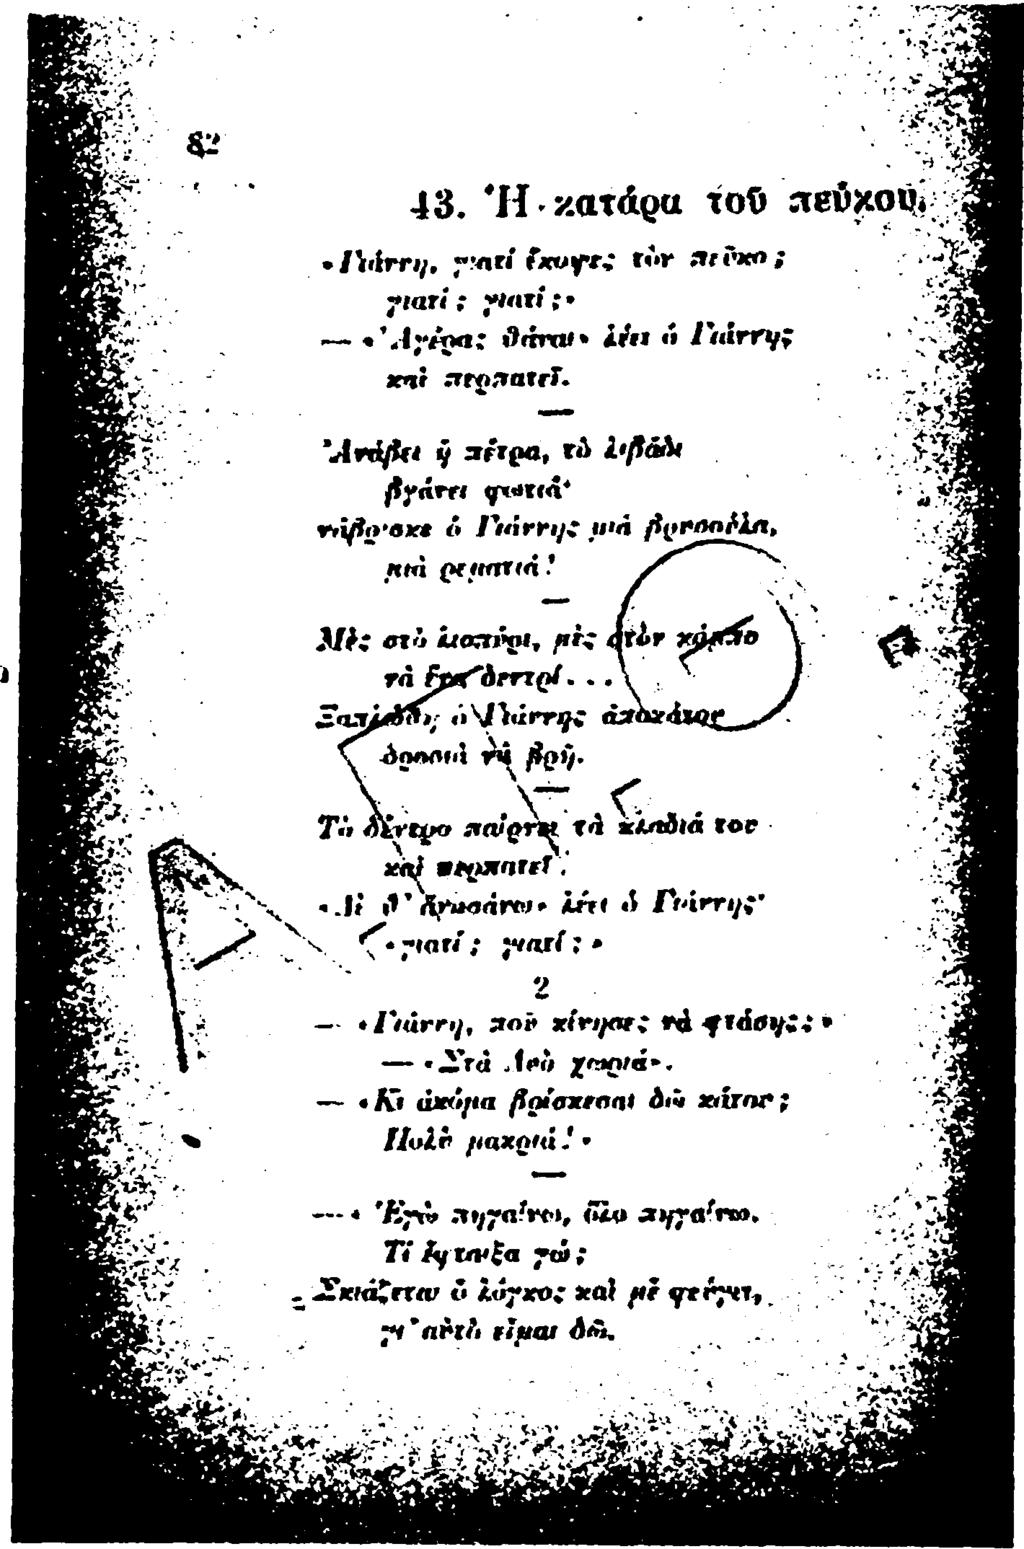 82
43. Ἡ κατάρα τοῦ πεύκου.
«Γιάννη, γιατί ἔκοψες τὸν πεῦκο ;
γιατί ; γιατί ;»
— «Ἀγέρας θἆναι» λέει ὁ Γιάννης
καὶ περπατεῖ.
Ἀνάβει ἡ πέτρα, τὸ λιβάδι
βγάνει φωτιά·
νἄβρισκε ὁ Γιάννης μιὰ βρυσούλα,
μιὰ ρεματιά!
Μὲς στὸ λιοπύρι, μὲς στὸν κάμπο
νὰ ἕνα δεντρί. . .
Ξαπλώθη ὁ Γιάννης ἀποκάτου
δροσιὰ νὰ βρῇ.
Τὸ δέντρο παίρνει τὰ κλαδιά του
καὶ περπατεῖ.
«Δὲ θ' ἀνασάνω» λέει ὁ Γιάννης·
«γιατί ; γιατί ; »
2
— «Γιάννη, ποῦ κίνησες νὰ φτάσῃς; »
— «Στὰ Δυὸ χωριά».
— «Κι ἀκόμα βρίσκεσαι δῶ κάτου ;
Πολὺ μακριά! »
— « Ἐγὼ πηγαίνω, ὅλο πηγαίνω.
Τί ἔφταιξα γώ ;
Σκιάζεται ὁ λόγκος καὶ μὲ φεύγει,
γι' αὐτὸ εἶμαι δῶ.